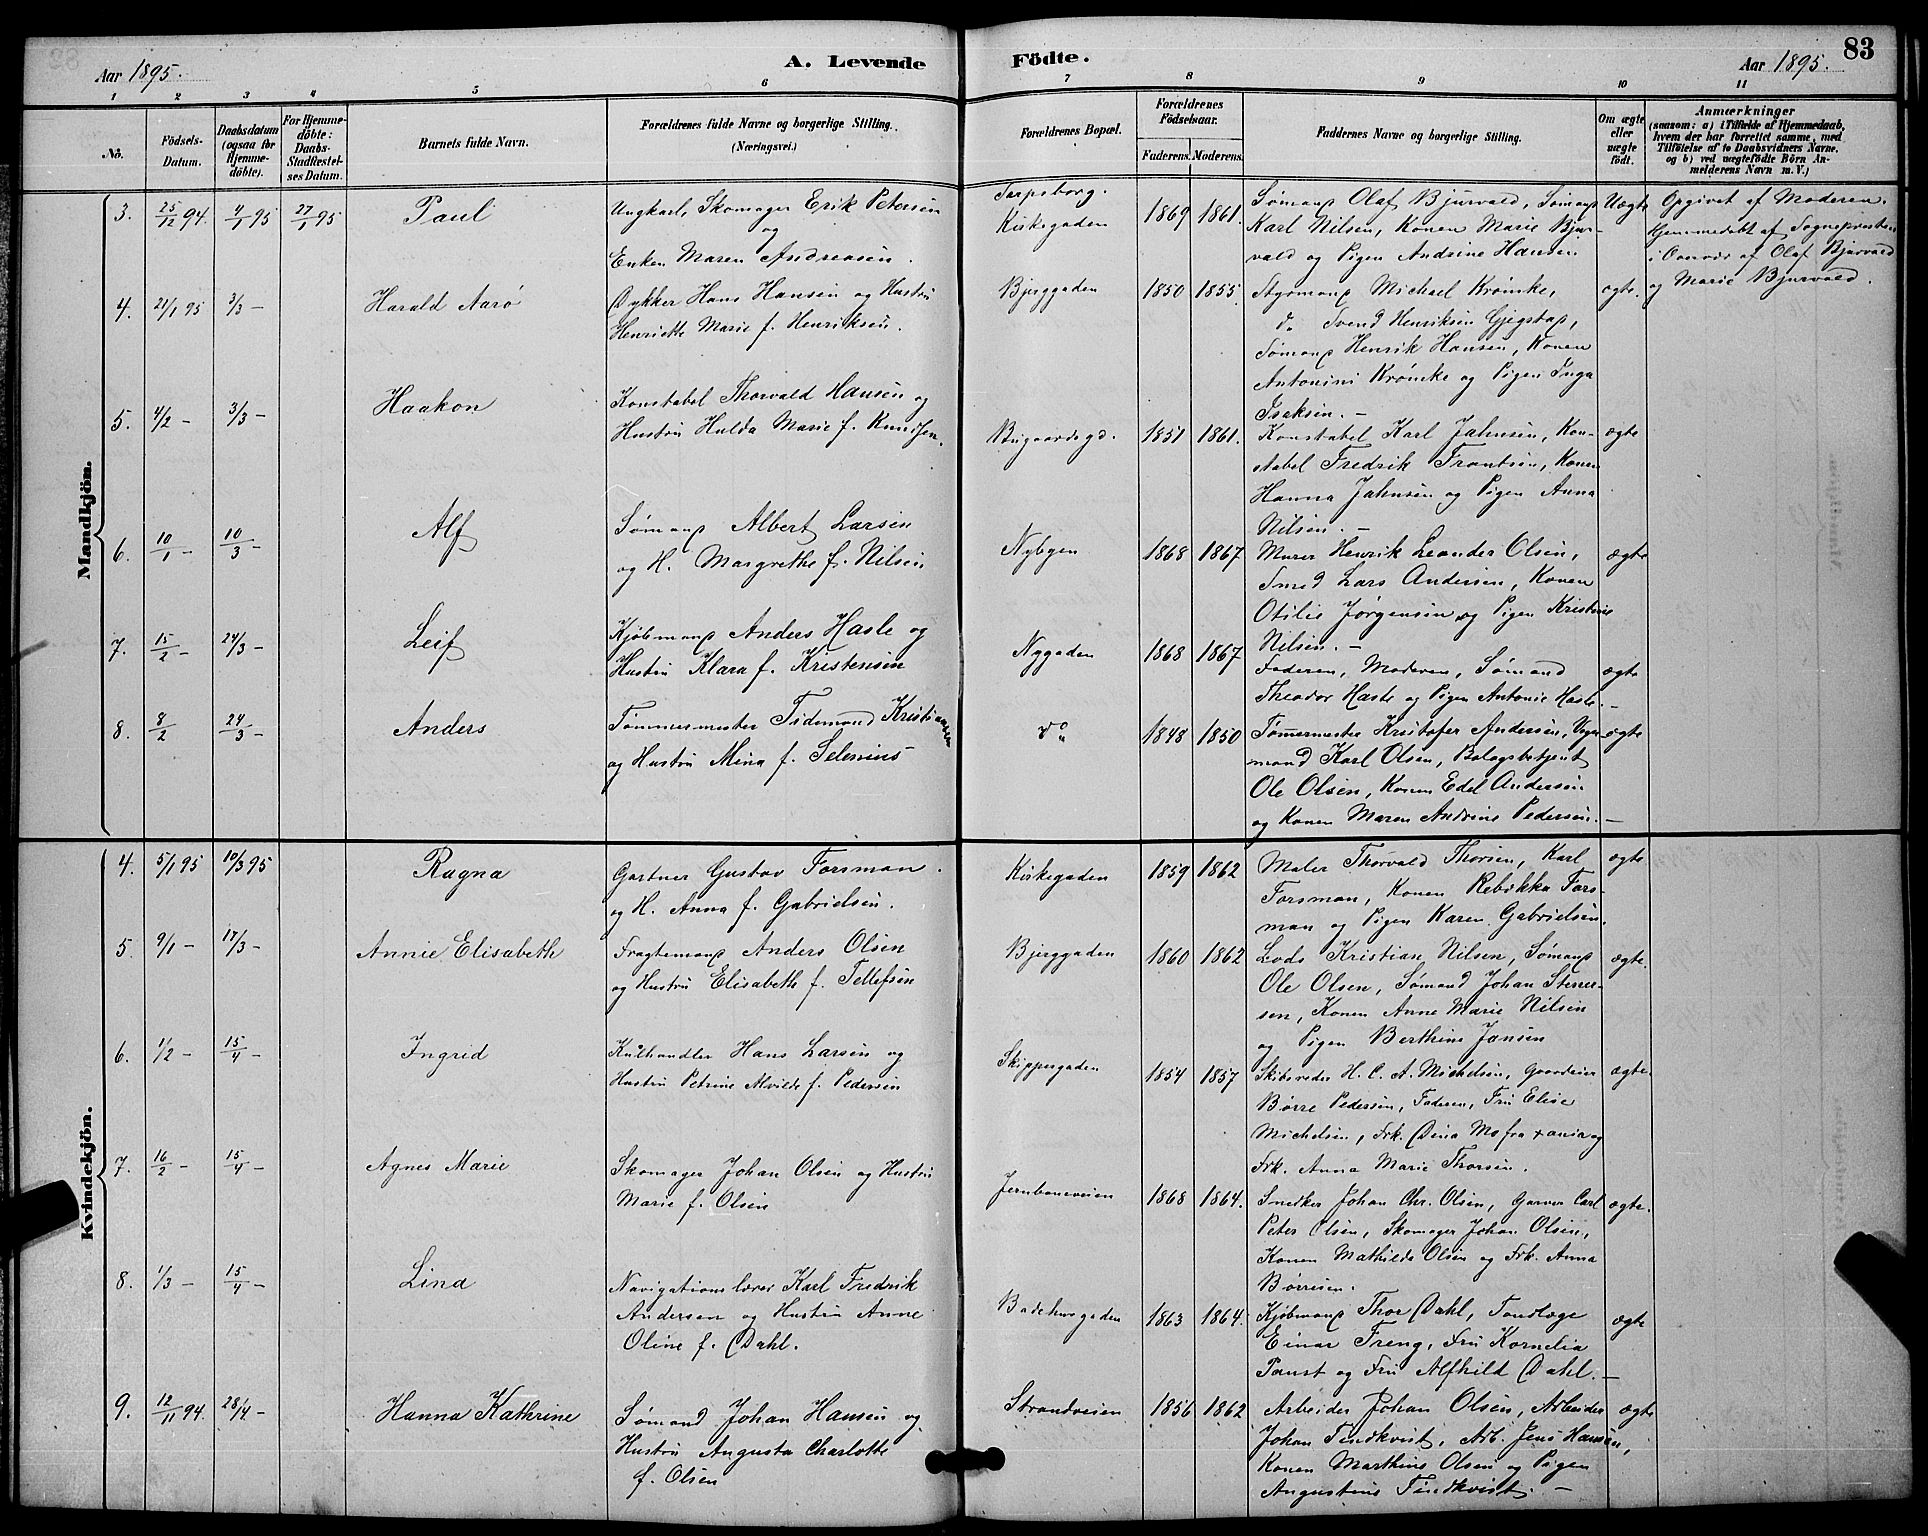 Aar 1895.
A. Levende Födte.
Aar 1895.
83
1 2 3 4 5 6 7 8 9 10 11
No.
Födsels-Datum.
Daabsdatum (ogsaa for Hjemmedöbte).
For Hjemmedöbte: Daabs-Stadfæstelses Datum.
Barnets fulde Navn.
Forældrenes fulde Navne og borgerlige Stilling. (Næringsvei.)
Forældrenes Bopæl.
Forældrenes Födselsaar.
Faderens. Moderens.
Faddernes Navne og borgerlige Stilling.
Om ægte eller uægte födt.
Anmærkninger
(saasom: a) i Tilfælde af Hjemmedaab,
hvem der har forrettet samme, med
Tilföielse af to Daabsvidners Navne,
og b) ved uægtefödte Börn Anmelderens Navn m. V.)
Mandkjön.
3. 25/12 94. 4/1 95 27/1 95 Paul
Ungkarl, Skomager Erik Petersen
og
Enken Maren Andreasen.
Tarpsborg.
Kirkegaden 1869 1861.
Sømand Olaf Bjurvald, Sømand
Karl Nilsen, Konen Marie Bjur-
vald og Pigen Andrine Hansen
Uægte
Opgivet af Moderen.
Hjemmedøbt af Sognepresten
i Overvær af Olaf Bjurvald
og Marie Bjurvald.
4. 21/1 95 3/3 — Harald Aarö
Dykker Hans Hansen og Hustru
Henriette Marie f. Henriksen.
Bjerggaden 1850 1855.
Styrmand Michael Krömke,
do Svend Henriksen
Sømand Henrik Hansen, Konen
Antonini Krömke og Pigen Inga
Isaksen. —
ægte.
5. 4/2 — 3/3 — Haakon
Konstabel Thorvald Hansen og
Hustru Hulda Marie f. Knudsen.
Bugaardsgd. 1851 1861.
Konstabel Karl Jahnsen, Kon-
stabel Fredrik Frantsen, Konen
Hanna Jahnsen og Pigen Anna
Nilsen. —
ægte
6. 10/1 — 10/3 — Alf
Sømand Albert Larsen
og H. Margrethe f. Nilsen
Nybyen 1868 1867
Murer Henrik Leander Olsen,
Smed Lars Andersen, Konen
Otilie Jørgensen og Pigen Kristine
Nilsen. —
ægte
7. 15/2 — 24/3 — Leif
Kjøbmand Anders Hasle og
Hustru Klara f. Kristensen
Nygaden 1868 1867
Faderen, Moderen, Sømand
Theodor Hasle og Pigen Antonie Hasle. —
ægte
8. 8/2 24/3 — Anders
Tømmermester Tidemand Kristiansen
og Hustru Mina f. Selenius
do 1848 1850
Tømmermester Kristofer Andersen,
mand Karl Olsen, Bolagsbetjent
Ole Olsen, Konen Edel Andersen
og Konen Maren Andrine Pedersen. —
ægte
Kvindekjön.
4. 5/1 95 10/3 95 Ragna
Gartner Gustav Forsman.
og H. Anna f. Gabrielsen.
Kirkegaden 1859 1862
Maler Thorvald Thorsen, Karl
Forsman, Konen Rebekka Fors-
man og Pigen Karen Gabrielsen.
ægte
5. 9/1 — 17/3 — Annie Elisabeth
Fragtemand Anders Olsen
og Hustru Elisabeth f. Tellefsen
Bjerggaden 1860 1862
Lods Kristian Nilsen, Sømand
Ole Olsen, Sømand Johan
sen, Konen Anne Marie Nilsen
og Pigen Berthine Jansen
ægte.
6. 1/2 — 15/4 — Ingrid
Kulhandler Hans Larsen og
Hustru Petrine Alvilde f. Pedersen
Skippergaden 1854 1857
Skibsreder H. C. A. Michelsen, Gaardeier
Børre Pedersen, Faderen, Fru Elise
Michelsen, Frk. Dina og
Frk. Anna Marie Thorsen.
ægte.
7. 16/2 — 15/4 — Agnes Marie
Skomager Johan Olsen og Hustru
Marie f. Olsen
Jernbaneveien 1868 1864.
Snedker Johan Chr. Olsen, Garver Carl
Peter Olsen, Skomager Johan Olsen,
Konen Mathilde Olsen og Frk. Anna
Børresen.
ægte.
8. 1/3 — 15/4 — Lina
Navigationslærer Karl Fredrik
Andersen og Hustru Anne
Oline f. Dahl.
Badehusgaden 1863 1864.
Kjøbmand Thor Dahl, Tandlæge
Einar Freng, Fru Kornelia
Paust og Fru Alfhild Dahl. —
ægte
9. 12/11 94. 28/4 — Hanna Kathrine
Sømand Johan Hansen og
Hustru Augusta Charlotte
f. Olsen
Strandveien 1856 1862
Arbeider Johan Olsen, Arbeider
Johan Findkvist, Arb. Jens Hansen,
Konen Marthine Olsen og Pigen
Augustine Findkvist. —
ægte